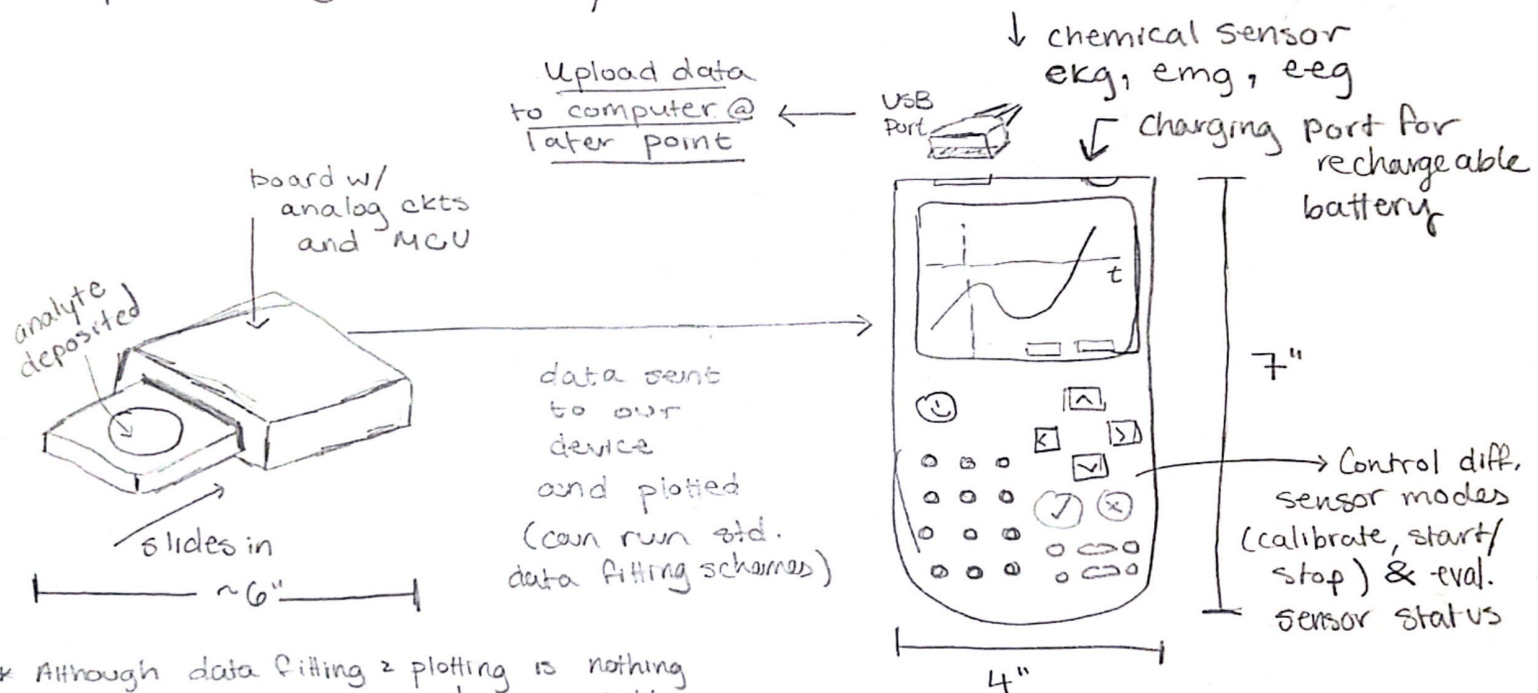 ↓ chemical sensor
ekg, emg, eeg
Upload data
to computer @
later point
USB
Port
charging port for
rechargeable
battery
board w/
analog ckts
and MCU
analyte
deposited
slides in
~6"
data sent
to our
device
and plotted
(can run std.
data fitting schemes)
t
7"
4"
Control diff.
sensor modes
(calibrate, start/
stop) & eval.
sensor status
* Although data fitting & plotting is nothing